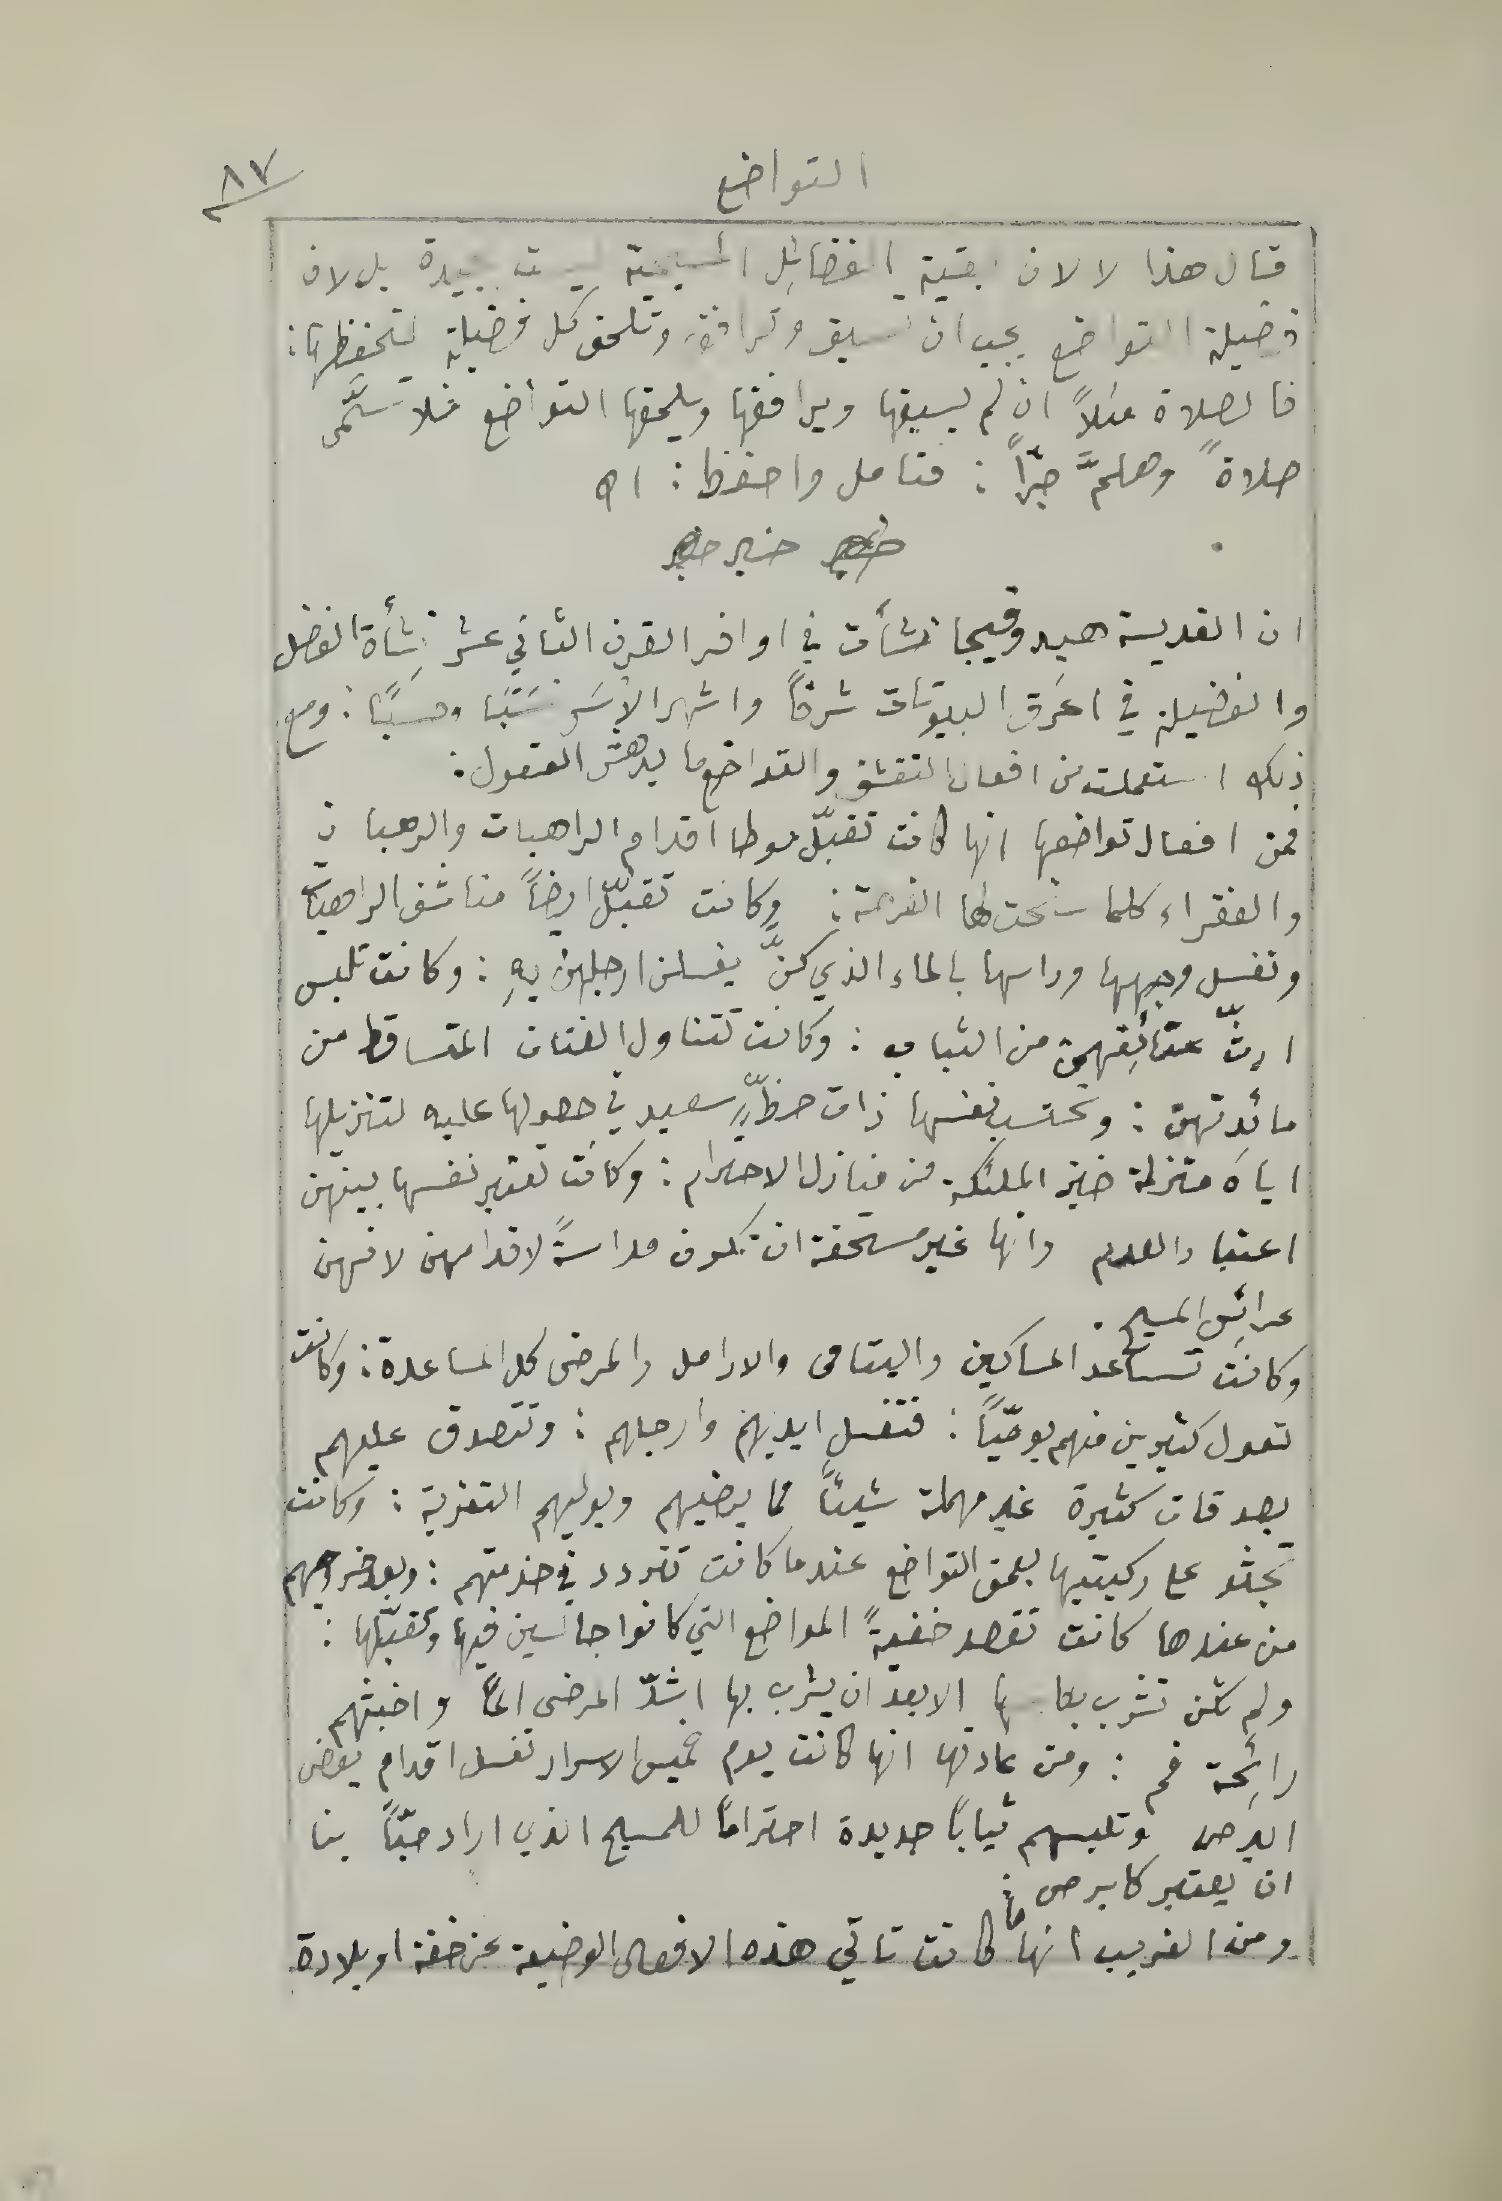 التواضع
٨٧
قال هذا لا لان بقية الفضائِل المسيحية ليست بجيدة بل لان
فضيلة التواضع يجب ان تسبق وترافق وتلحق كل فضيلةٍ لتحفظها:
فالصلاة مثلاً ان لم يسبقها ويرافقها ويلحقها التواضع فلا تسمَّى
صلاةً وهلمَّ جرّاً: فتامل واحفظ: اه
خبر
ان القديسة هيدوقيجا نشأَت في اواخر القرن الثاني عشر نشأَة الفضل
والفضيلة في اعَرق البيوتات شرفاً واشهر الاُسَر نَسَبًا وحسبًا: ومع
ذلك استعملت من افعال التقشف والتواضع ما يدهش العقول:
فمن افعال تواضعها انها كانت تقبّل موطا اقدام الراهبات والرهبان
والفقراء كلما سنحت لها الفرصة: وكانت تقبّل ايضاً مناشف الراهبات
وتغسل وجهها وراسها بالماء الذي كنَّ يغسلن ارجلهنَّ بهِ: وكانت تلبس
ارثّ عتائِقهن من الثياب: وكانت تتناول الفتات المتساقط من
مائدتهن: وتحتسب نفسها ذات حظّ سعيد في حصولها عليه لتنزيلها
اياه منزلة خبز الملئكة من منازل الاحترام: وكانت تعتبر نفسها بينهن
اعتبار العدم وانها غير مستحقة ان تكون مداسةً لاقدامهن لانهن
عرائِس المسيح.
وكانت تساعد المساكين واليتامى والارامل والمرضى كل المساعدة: وكانت
تعول كثيرين منهم يوميّاً: فتغسل ايديهم وارجلهم: وتتصدق عليهم
بصدقات كثيرة غير مهملة شيئاً مما يرضيهم ويوليهم التعزية: وكانت
تجثو على ركبتيها بعمق التواضع عندما كانت تتردد في خدمتهم: وبعد خروجهم
من عندها كانت تقصد خفيةً المواضع التي كانوا جالسين فيها وتقبّلها:
ولم تكن تشرب بكاسها الا بعد ان يشرب بها اشدّ المرضى الماً واخبثهم
رائِحة فم: ومن عادتها انها كانت يوم خميس الاسرار تغسل اقدام بعض
البرص وتلبسهم ثياباً جديدة احتراماً للمسيح الذي اراد حبّاً بنا
ان يعتبر كابرص:
ومن الغريب انها ما كانت تاتي هذه الافعال الوضيعة عن خفة او بلادة